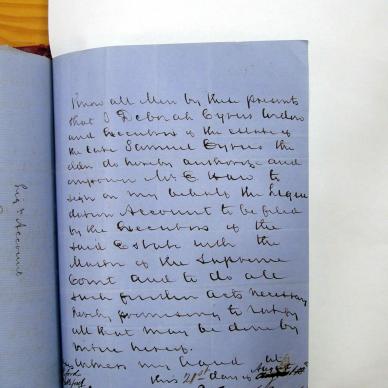 Know all Men by these presents
that I Deborah Cyrus Widow
and Executrix of the estate of
the late Samuel Cyrus the
do hereby authorize and
empower Mr. E Haw to
sign on my behalf the Liqui-
dation Account to be filed
by the Executors of the
said Estate with the
Master of the Supreme
Court and to do all
such further acts necessary
hereby promising to ratify
all that may be done by
virtue hereof.
Witness my hand at
this 21st day of August
Liq. Account